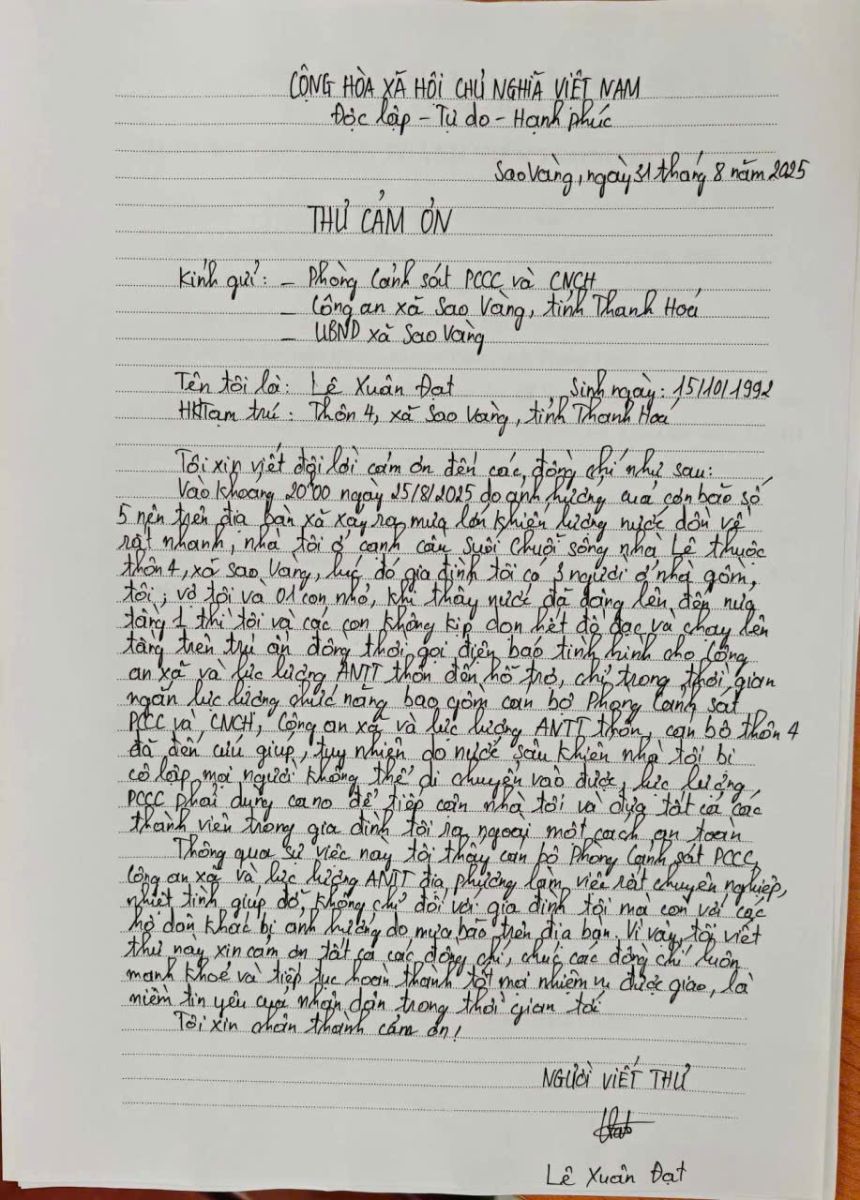 CỘNG HÒA XÃ HỘI CHỦ NGHĨA VIỆT NAM
Độc lập - Tự do - Hạnh phúc
Sao Vàng, ngày 31 tháng 8 năm 2025
THƯ CẢM ƠN
Kính gửi: - Phòng Cảnh sát PCCC và CNCH
- Công an xã Sao Vàng, tỉnh Thanh Hoá
- UBND xã Sao Vàng
Tên tôi là: Lê Xuân Đạt Sinh ngày: 15/10/1992
Tạm trú: Thôn 4, xã Sao Vàng, tỉnh Thanh Hoá
Tôi xin viết đôi lời cảm ơn đến các đồng chí như sau:
Vào khoảng 20:00 ngày 25/8/2025 do ảnh hưởng của cơn bão số
5 nên trên địa bàn xã xảy ra mưa lớn khiến lượng nước dồn về
rất nhanh, nhà tôi ở cạnh cầu Suối Chuối sông nhà Lê thuộc
thôn 4, xã Sao Vàng, lúc đó gia đình tôi có 3 người ở nhà gồm,
tôi; vợ tôi và 01 con nhỏ, khi thấy nước đã dâng lên đến nửa
tầng 1 thì tôi và các con không kịp dọn hết đồ đạc và chạy lên
tầng trên trú ẩn đồng thời gọi điện báo tình hình cho Công
an xã và lực lượng ANTT thôn đến hỗ trợ, chỉ trong thời gian
ngắn lực lượng chức năng bao gồm cán bộ Phòng Cảnh sát
PCCC và CNCH, Công an xã và lực lượng ANTT thôn, cán bộ thôn 4
đã đến cứu giúp, tuy nhiên do nước sâu khiến nhà tôi bị
cô lập mọi người không thể di chuyển vào được, lực lượng
PCCC phải dùng cano để tiếp cận nhà tôi và đưa tất cả các
thành viên trong gia đình tôi ra ngoài một cách an toàn
Thông qua sự việc này tôi thấy cán bộ Phòng Cảnh sát PCCC,
Công an xã và lực lượng ANTT địa phương làm việc rất chuyên nghiệp,
nhiệt tình giúp đỡ, không chỉ đối với gia đình tôi mà còn với các
hộ dân khác bị ảnh hưởng do mưa bão trên địa bàn. Vì vậy, tôi viết
thư này xin cảm ơn tất cả các đồng chí, chúc các đồng chí luôn
mạnh khoẻ và tiếp tục hoàn thành tốt mọi nhiệm vụ được giao, là
niềm tin yêu của nhân dân trong thời gian tới
Tôi xin chân thành cảm ơn!
NGƯỜI VIẾT THƯ
Lê Xuân Đạt